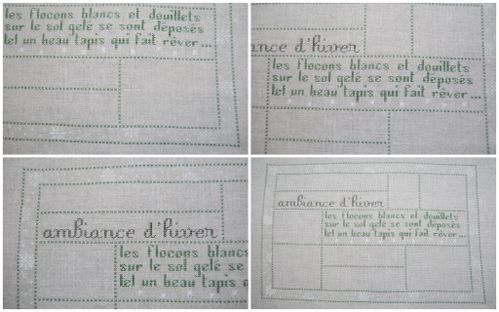 les flocons blancs et douillets
sur le sol gelé se sont déposés
tel un beau tapis qui fait rêver...
ance d'hiver
les flocons blancs et douillets
sur le sol gelé se sont déposés
tel un beau tapis qui fait rêver...
ambiance d'hiver
les flocons blancs
sur le sol gelé se
tel un beau tapis
ambiance d'hiver
les flocons blancs et douillets
sur le sol gelé se sont déposés
tel un beau tapis qui fait rêver...